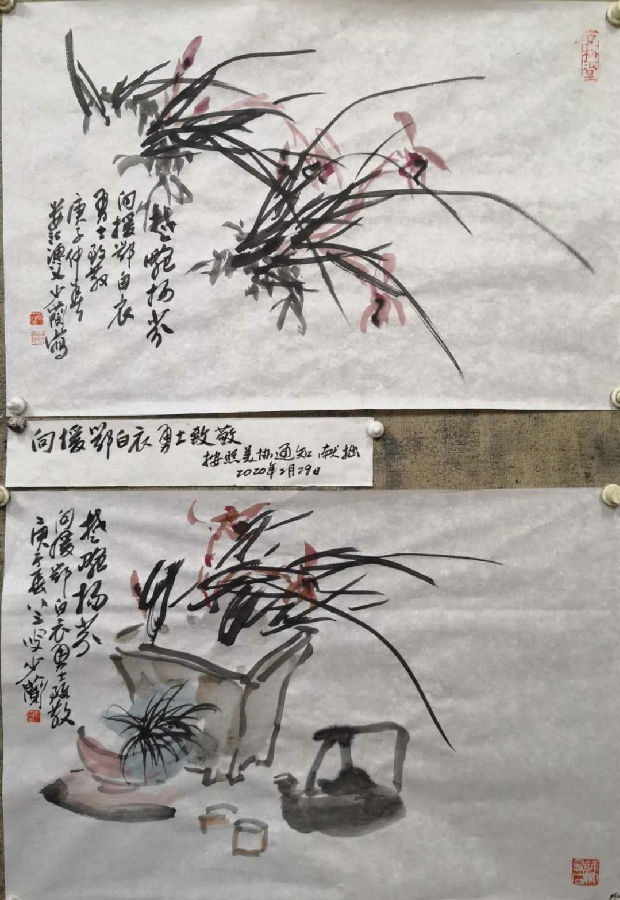 楚畹扬芬
向援鄂白衣
勇士致敬
庚子仲春
少兰写
向援鄂白衣勇士致敬
按照美协通知 献拙
2020年2月29日
楚畹扬芬
向援鄂白衣勇士致敬
庚子春八三叟少兰